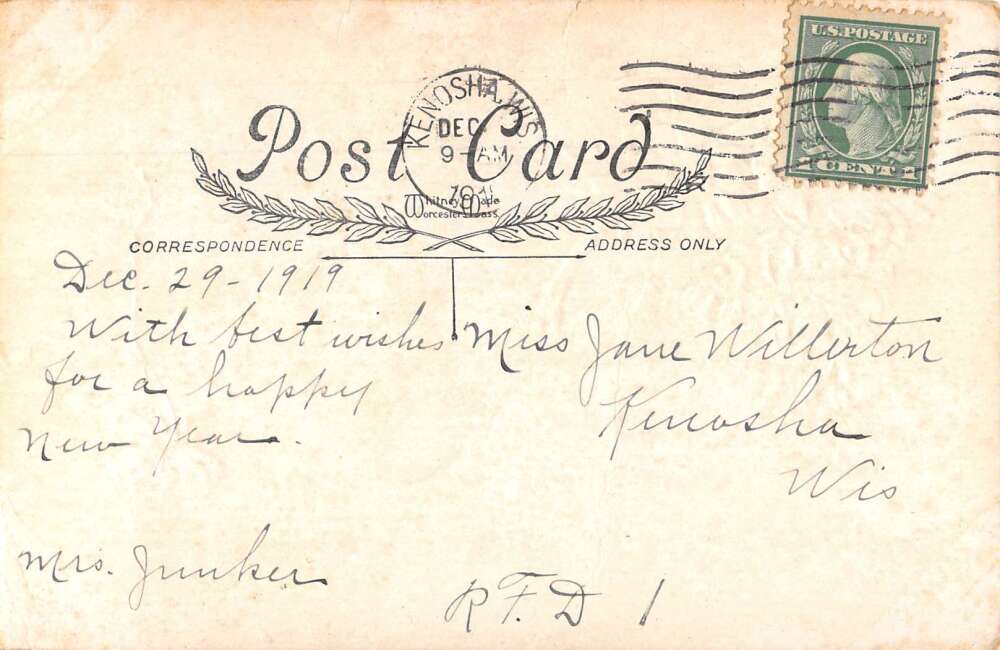 U.S. POSTAGE
KENOSHA, WIS
DEC
9- AM
Post Card
Whitney Made
Worcester, Mass.
CORRESPONDENCE
ADDRESS ONLY
Dec. 29 - 1919
With best wishes
for a happy
New Year.
Mrs. Junker
Miss Jane Willerton
Kenosha
Wis
R.F.D 1